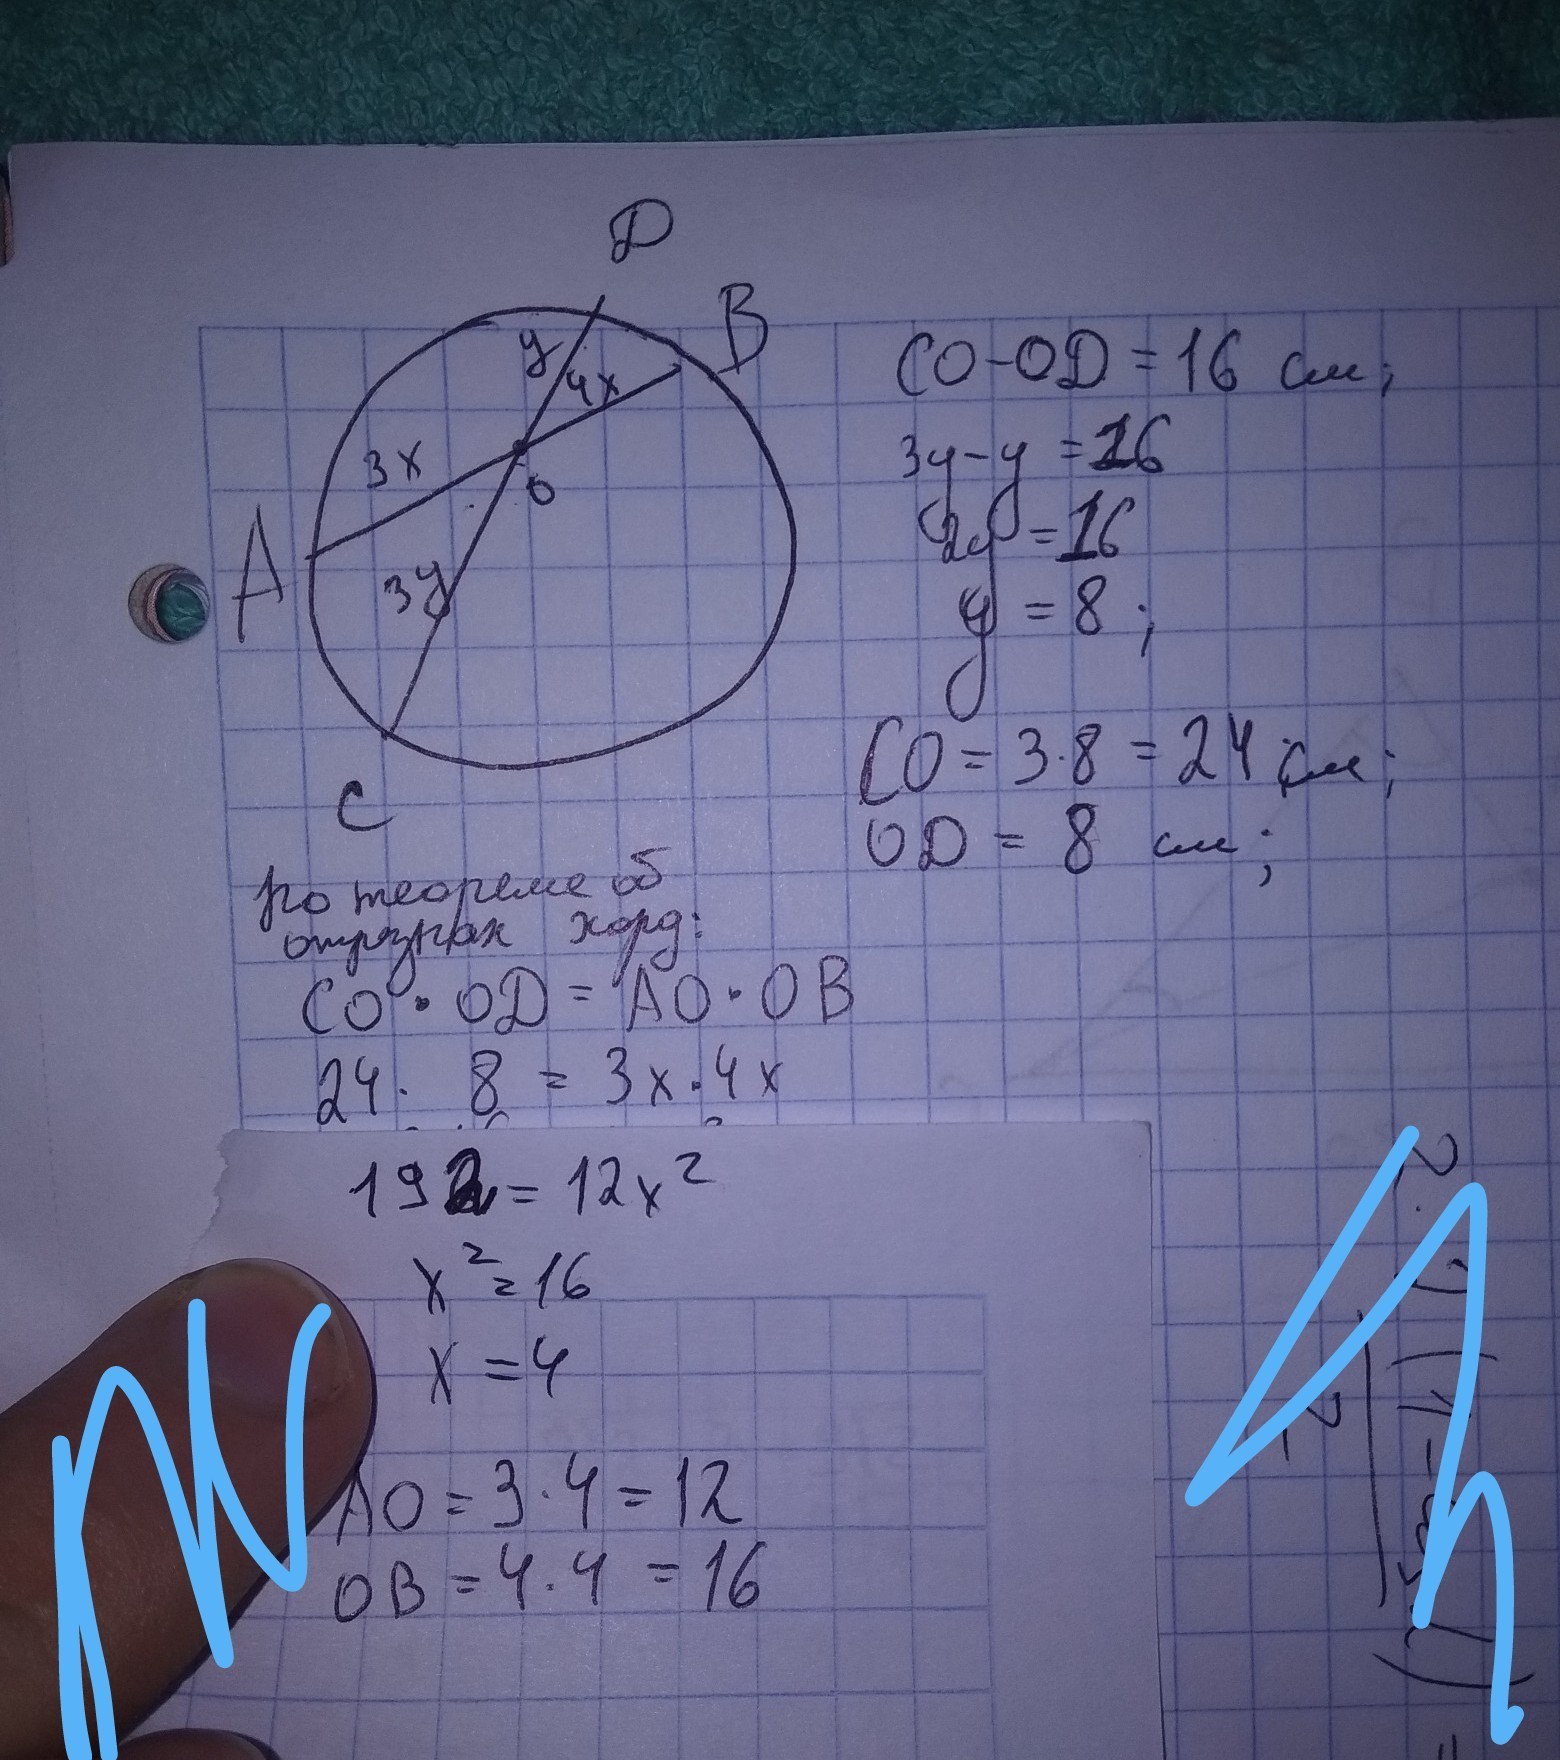 D
B
y
4x
3x
O
A
3y
C
CO-OD = 16 см;
3y-y = 16
2y = 16
y = 8;
CO = 3·8 = 24 см;
OD = 8 см;
по теореме об
отрезках хорд:
CO · OD = AO · OB
24 · 8 = 3x · 4x
192 = 12x²
x² = 16
x = 4
AO = 3·4 = 12
OB = 4·4 = 16